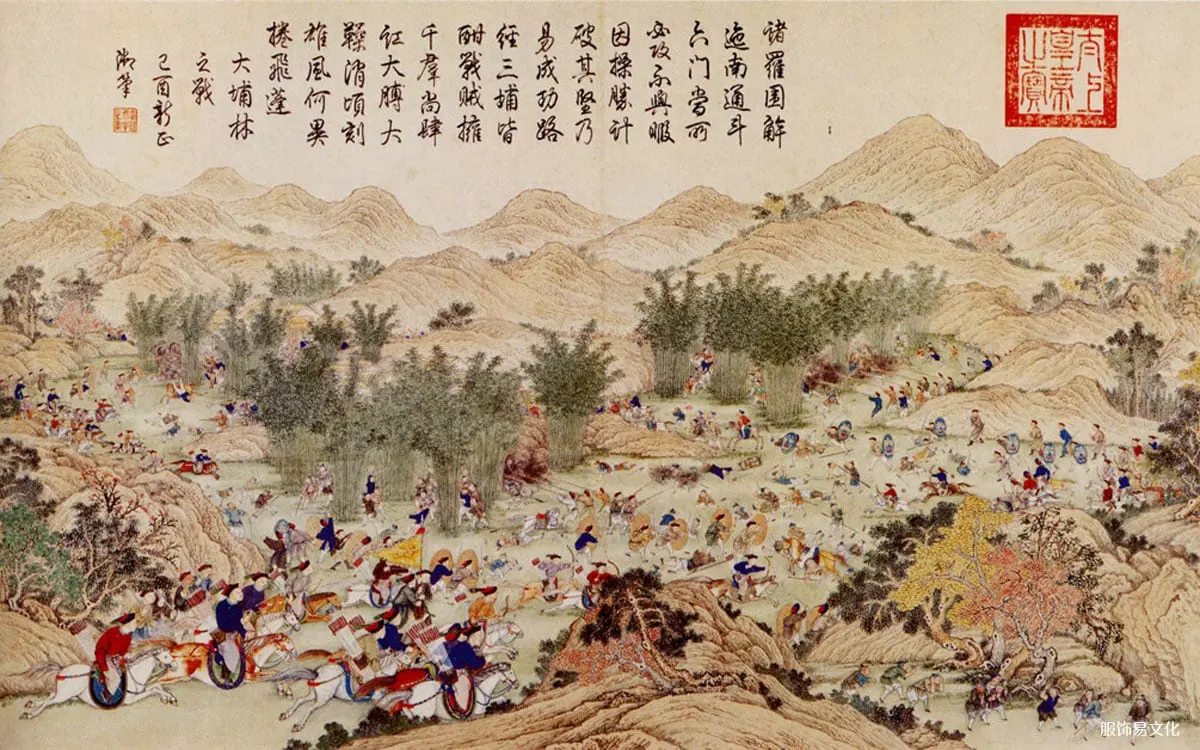 諸羅圍解
迤南通斗
六門當所
必攻不與暇
因操勝計
破其堅乃
易成功路
經三埔皆
酣戰賊擁
千群尚肆
訌大膊大
消頃刻
雄風何異
捲飛蓬
大埔林
之戰
己酉新正
御筆
太上皇帝之寶
服饰易文化